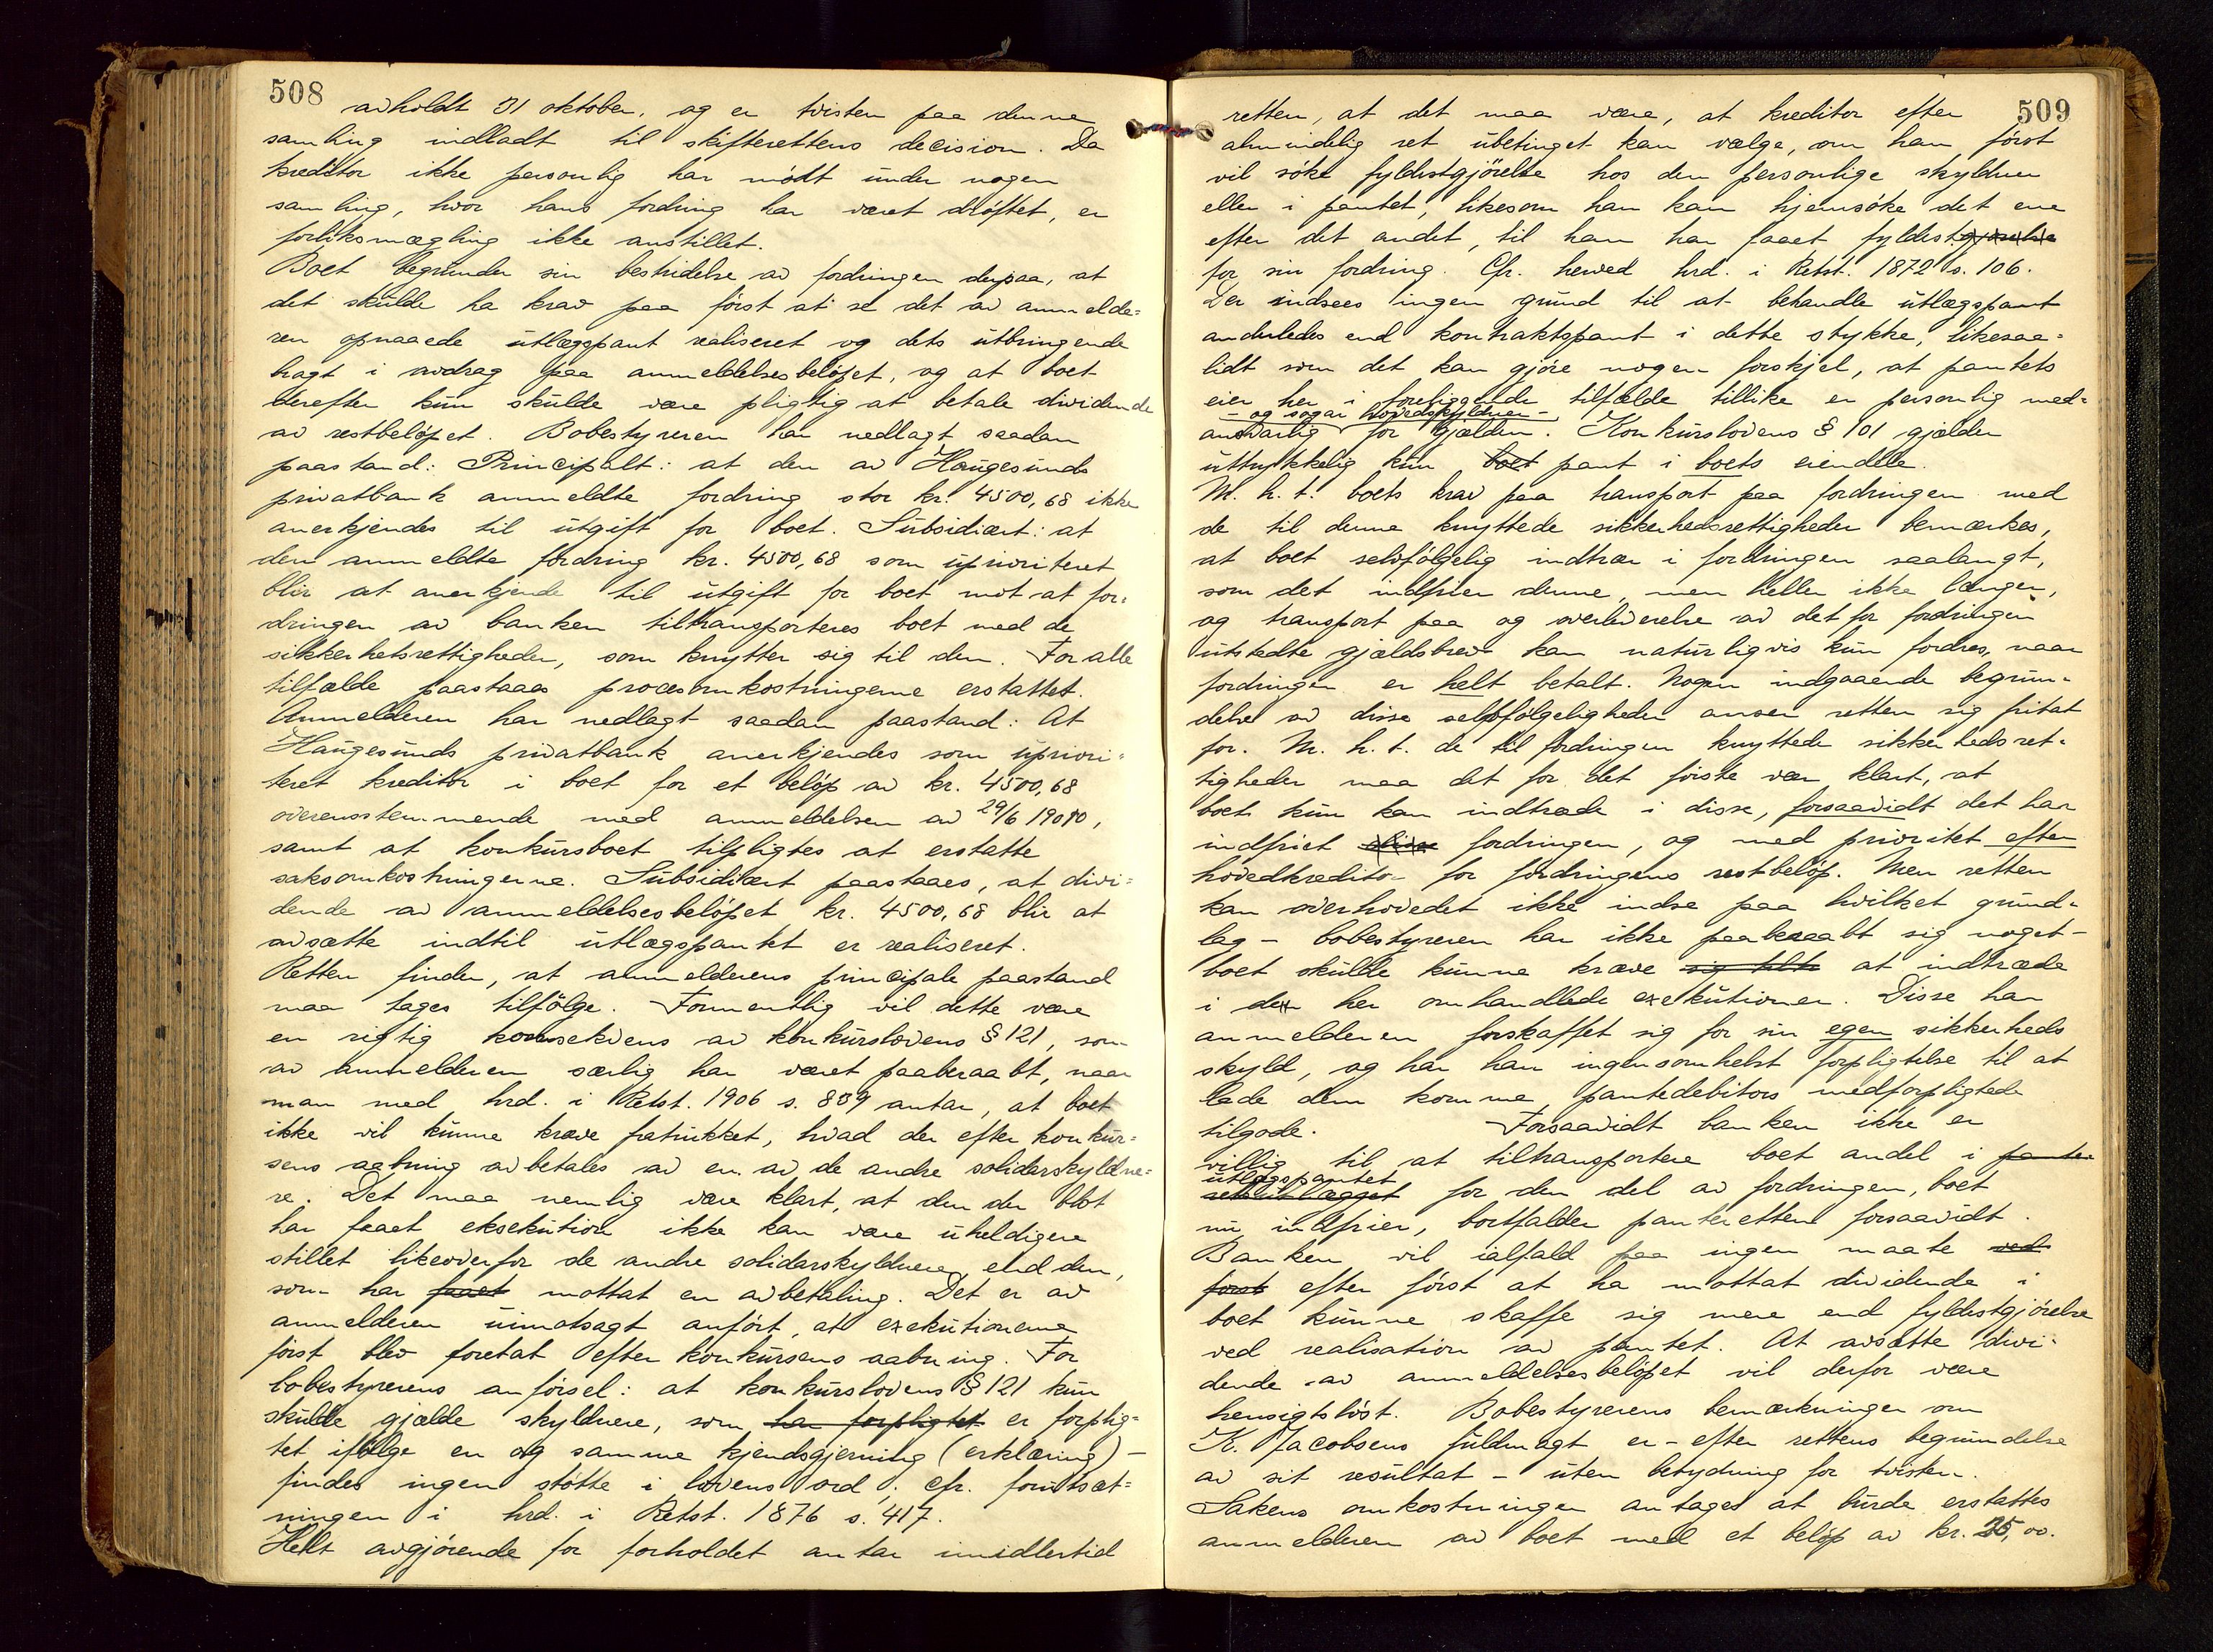 508
avholdt 31 oktober, og er tvisten paa denne
samling indladt til skifterettens decision. Da
kreditor ikke personlig har mödt under nogen
samling, hvor hans fordring har været dröftet, er
forliksmægling ikke anstillet.
Boet begrunder sin bestridelse av fordringen derpaa, at
det skulde ha krav paa först at se det av anmelde=
ren opnaaede utlægspant realiseret og dets utbringende
bragt i avdrag paa anmeldelsesbelöpet, og at boet
derefter kun skulde være pligtig at betale dividende
av restbelöpet. Bobestyreren har nedlagt saadan
paastand: Principalt: at den av Haugesunds
privatbank anmeldte fordring stor kr. 4500,68 ikke
anerkjendes til utgift for boet. Subsidiært: at
den anmeldte fordring kr. 4500,68 som uprioriteret
blir at anerkjende til utgift for boet mot at for=
dringen av banken tiltransporteres boet med de
sikkerhetsrettigheder, som knytter sig til den. For alle
tilfælde paastaaes procesomkostningerne erstattet.
Anmelderen har nedlagt saadan paastand: At
Haugesunds privatbank anerkjendes som upriori=
teret kreditor i boet for et belöp av kr. 4500,68
overensstemmende med anmeldelsen av 29/6 1910,
samt at konkursboet tilpligtes at erstatte
saksomkostningerne. Subsidiært paastaaes, at divi=
dende av anmeldelsesbelöpet kr. 4500,68 blir at
avsætte indtil utlægspantet er realiseret.
Retten finder, at anmelderens principale paastand
maa tages tilfölge. Formentlig vil dette være
en rigtig konsekvens av konkurslovens § 121, som
av anmelderen særlig har været paaberaabt, naar
man med hrd. i Retst. 1906 s. 809 antar, at boet
ikke vil kunne kræve fratrukket, hvad der efter konkur=
sens aabning avbetales av en av de andre solidarskyldne=
re. Det maa nemlig være klart, at den der blot
har faaet eksekution ikke kan være uheldigere
stillet likeoverfor de andre solidarskyldnere, end den,
som har faaet mottat en avbetaling. Det er av
anmelderen uimotsagt anfört, at exekutionerne
först blev foretat efter konkursens aabning. For
bobestyrerens anförsel: at konkurslovens § 121 kun
skulde gjælde skyldnere, som har forpligtet er forplig=
tet ifölge en og samme kjendsgjerning (erklæring) -
findes ingen stötte i lovens ord, cfr. forutsæt=
ningen i hrd. i Retst. 1876 s. 417.
Helt avgjörende for forholdet antar imidlertid
509
retten, at det maa være, at kreditor efter
almindelig ret ubetinget kan vælge, om han först
vil söke fyldestgjörelse hos den personlige skyldner
eller i pantet, likesom han kan hjemsöke det ene
efter det andet, til han har faaet fyldestgjörelse
for sin fordring. Cfr. herved hrd. i Retst. 1872 s. 106.
Der indsees ingen grund til at behandle utlægspant
anderledes end kontraktspant i dette stykke, likesaa=
lidt som det kan gjöre nogen forskjel, at pantets
eier her i foreliggende tilfælde tillike er personlig med=
- og sogar hovedskyldner -
ansvarlig for gjælden. Konkurslovens § 101 gjælder
uttrykkelig kun boet pant i boets eiendele.
M. h. t. boets krav paa transport paa fordringen med
de til denne knyttede sikkerhedsrettigheder bemærkes,
at boet selvfölgelig indtrær i fordringen saalangt,
som det indfrier denne, men heller ikke længer,
og transport paa og overleverelse av det for fordringen
utstedte gjældsbrev kan naturligvis kun fordres, naar
fordringen er helt betalt. Nogen indgaaende begrun=
delse av disse selvfölgeligheder anser retten sig fritat
for. M. h. t. de til fordringen knyttede sikkerhedsret=
tigheder maa det for det förste være klart, at
boet kun kan indtræde i disse, forsaavidt det har
indfriet disse fordringen, og med prioritet efter
hovedkreditor for fordringens restbelöp. Men retten
kan overhovedet ikke indse paa hvilket grund=
lag - bobestyreren har ikke paaberaabt sig noget -
boet skulde kunne kræve sig tilt at indtræde
i de her omhandlede exekutioner. Disse har
anmelderen forskaffet sig for sin egen sikkerheds
skyld, og har han ingensomhelst forpligtelse til at
lade dem komme pantedebitors medforpligtede
tilgode. Forsaavidt banken ikke er
villig til at tiltransportere boet andel i pante=
utlægspantet
retsutlægget for den del av fordringen, boet
nu indfrier, bortfalder panteretten forsaavidt.
Banken vil ialfald paa ingen maate ved
först efter först at ha mottat dividende i
boet kunne skaffe sig mere end fyldestgjörelse
ved realisation av pantet. At avsætte divi=
dende av anmeldelsesbelöpet vil derfor være
hensigtslöst. Bobestyrerens bemærkninger om
K. Jacobsens fuldmagt er - efter rettens begrundelse
av sit resultat - uten betydning for tvisten.
Sakens omkostninger antages at burde erstattes
anmelderen av boet med et belöp av kr. 25,00.